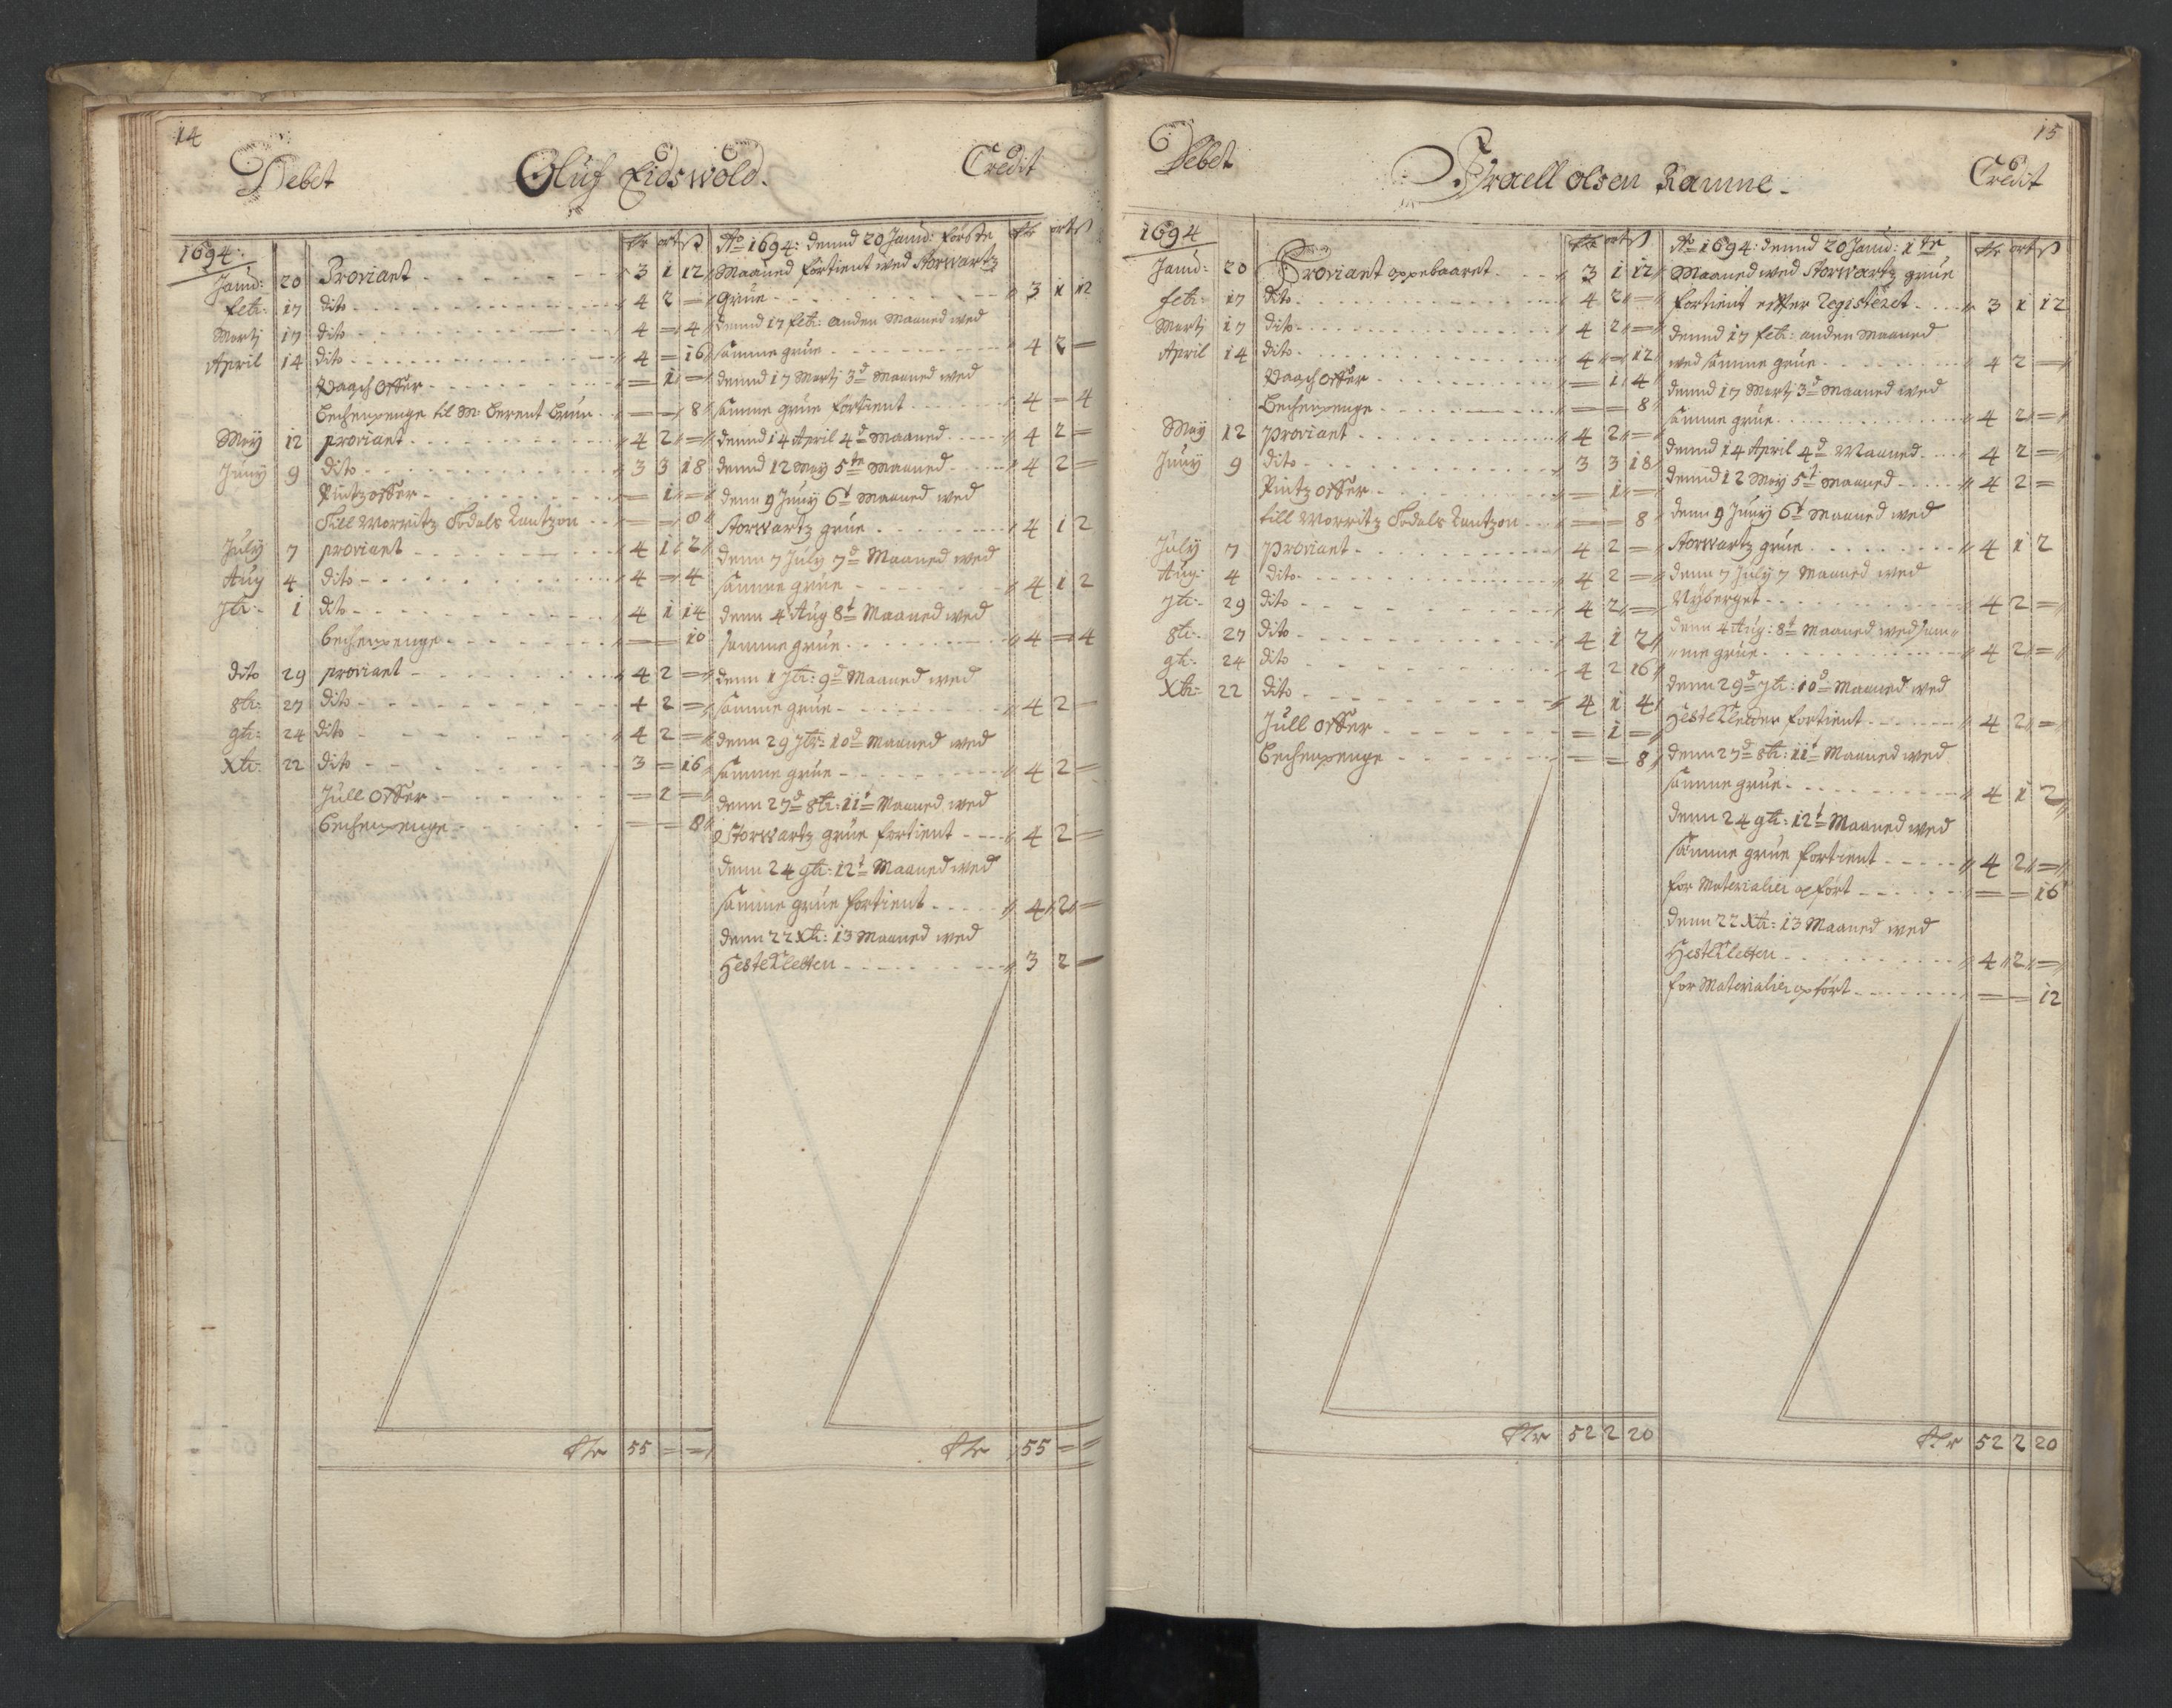 14
Debet Oluf Eidswold. Credit
1694:
Rdr ort ß
Janū: 20 Proviant 3 1 12
Feb: 17 dito 4 2 =
Martj 17 dito 4 = 4
April 14 dito 4 = 16
Paasch Offer = 1 =
Bechenpenge til Mr: Berent Brun = = 8
Maÿ 12 proviant 4 2 =
Junÿ 9 dito 3 3 18
Pintz offer = 1 =
Till Morritz Todals Rantzon = = 8
Julÿ 7 proviant 4 1 2
Aug 4 dito 4 = 4
7br: 1 dito 4 1 14
bechenpenge = = 10
dito 29 proviant 4 2 =
8br: 27 dito 4 2 =
9br: 24 dito 4 2 =
Xbr: 22 dito 3 = 16
Jull Offer = 2 =
bechenpenge = = 8
Rdr 55 = =
Rdr ort ß
Ao 1694: dennd 20 Janū: förste
Maaned fortient wed Storwartz
Grue 3 1 12
dennd 17 feb: anden Maaned wed
samme grue 4 2 =
dennd 17 Martj 3d Maaned wed
samme grue fortient 4 = 4
dennd 14 April 4d Maaned 4 2 =
dennd 12 Maÿ 5te Maaned 4 2 =
denn 9 Junÿ 6t Maaned wed
Storwartz grue 4 1 2
denn 7 Julÿ 7d Maaned wed
samme grue 4 1 2
denn 4 Aug 8t Maaned wed
samme grue 4 = 4
denn 1 7br: 9d Maaned wed
samme grue 4 2 =
denn 29 7br: 10d Maaned wed
samme grue 4 2 =
denn 27d 8br: 11t Maaned wed
Storwartz grue fortient 4 2 =
denn 24 9br: 12t Maaned wed
samme grue fortient 4 2 =
denn 22 Xbr: 13 Maaned wed
Hestekletten 3 2 =
Rdr 55 = =
15
Debet Israell olsen Ramme. Credit
1694
Rdr ort ß
Janū: 20 Proviant oppebaaret 3 1 12
feb: 17 dito 4 2 =
Martj 17 dito 4 2 =
April 14 dito 4 = 12
Paasch Offer = 1 4
Bechenpenge = = 8
Maÿ 12 Proviant 4 2 =
Junÿ 9 dito 3 3 18
Pintz offer = 1 =
till Morritz Todals Rantzon = = 8
Julÿ 7 Proviant 4 2 =
Aug: 4 dito 4 2 =
7br: 29 dito 4 2 =
8br: 27 dito 4 1 2
9br: 24 dito 4 2 16
Xbr: 22 dito 4 1 4
Jull Offer = 1 =
Bechenpenge = = 8
Rdr 52 2 20
Rdr ort ß
Ao 1694: dennd 20 Janū: 1te
Maaned wed Storwartz grue
fortient effter Registeret 3 1 12
dennd 17 feb: anden Maaned
wed samme grue 4 2 =
dennd 17 Martj 3d Maaned wed
samme grue 4 2 =
dennd 14 April 4d Maaned 4 2 =
dennd 12 Maÿ 5t Maaned 4 2 =
denn 9 Junÿ 6t Maaned wed
Storwartz grue 4 1 2
denn 7 Julÿ 7 Maaned wed
Nÿberget 4 2 =
denn 4 Aug: 8t Maaned wed sam=
=me grue 4 2 =
denn 29d 7br: 10d Maaned wed
Hestekletten fortient 4 2 =
denn 27d 8br: 11t Maaned wed
samme grue 4 1 2
denn 24 9br: 12t Maaned wed
samme grue fortient 4 2 =
for Materialier opfört = = 16
denn 22 Xbr: 13 Maaned wed
Hestekletten 4 2 =
for Materialier opfört = = 12
Rdr 52 2 20